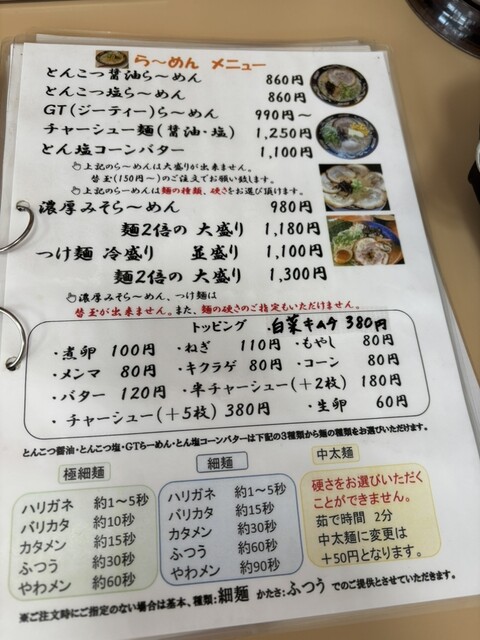 ら～めん メニュー
とんこつ醤油ら～めん 860円
とんこつ塩ら～めん 860円
GT(ジーティー)ら～めん 990円～
チャーシュー麺(醤油・塩) 1,250円
とん塩コーンバター 1,100円
上記のら～めんは大盛りが出来ません。
替玉(150円～)のご注文でお願い致します。
上記のら～めんは麺の種類、硬さをお選び頂けます。
濃厚みそら～めん 980円
麺2倍の 大盛り 1,180円
つけ麺 冷盛り 並盛り 1,100円
麺2倍の 大盛り 1,300円
濃厚みそら～めん、つけ麺は
替玉が出来ません。また、麺の硬さのご指定もいただけません。
トッピング ・白菜キムチ 380円
・煮卵 100円 ・ねぎ 110円 ・もやし 80円
・メンマ 80円 ・キクラゲ 80円 ・コーン 80円
・バター 120円 ・半チャーシュー(＋2枚) 180円
・チャーシュー(＋5枚) 380円 ・生卵 60円
とんこつ醤油・とんこつ塩・GTら～めん・とん塩コーンバターは下記の3種類から麺の種類をお選びいただけます。
極細麺 細麺 中太麺
ハリガネ 約1～5秒 ハリガネ 約1～5秒 硬さをお選びいただく
バリカタ 約10秒 バリカタ 約15秒 ことができません。
カタメン 約15秒 カタメン 約30秒 茹で時間 2分
ふつう 約30秒 ふつう 約60秒 中太麺に変更は
やわメン 約60秒 やわメン 約90秒 +50円となります。
※ご注文時にご指定のない場合は基本、種類:細麺 かたさ:ふつう でのご提供とさせていただきます。